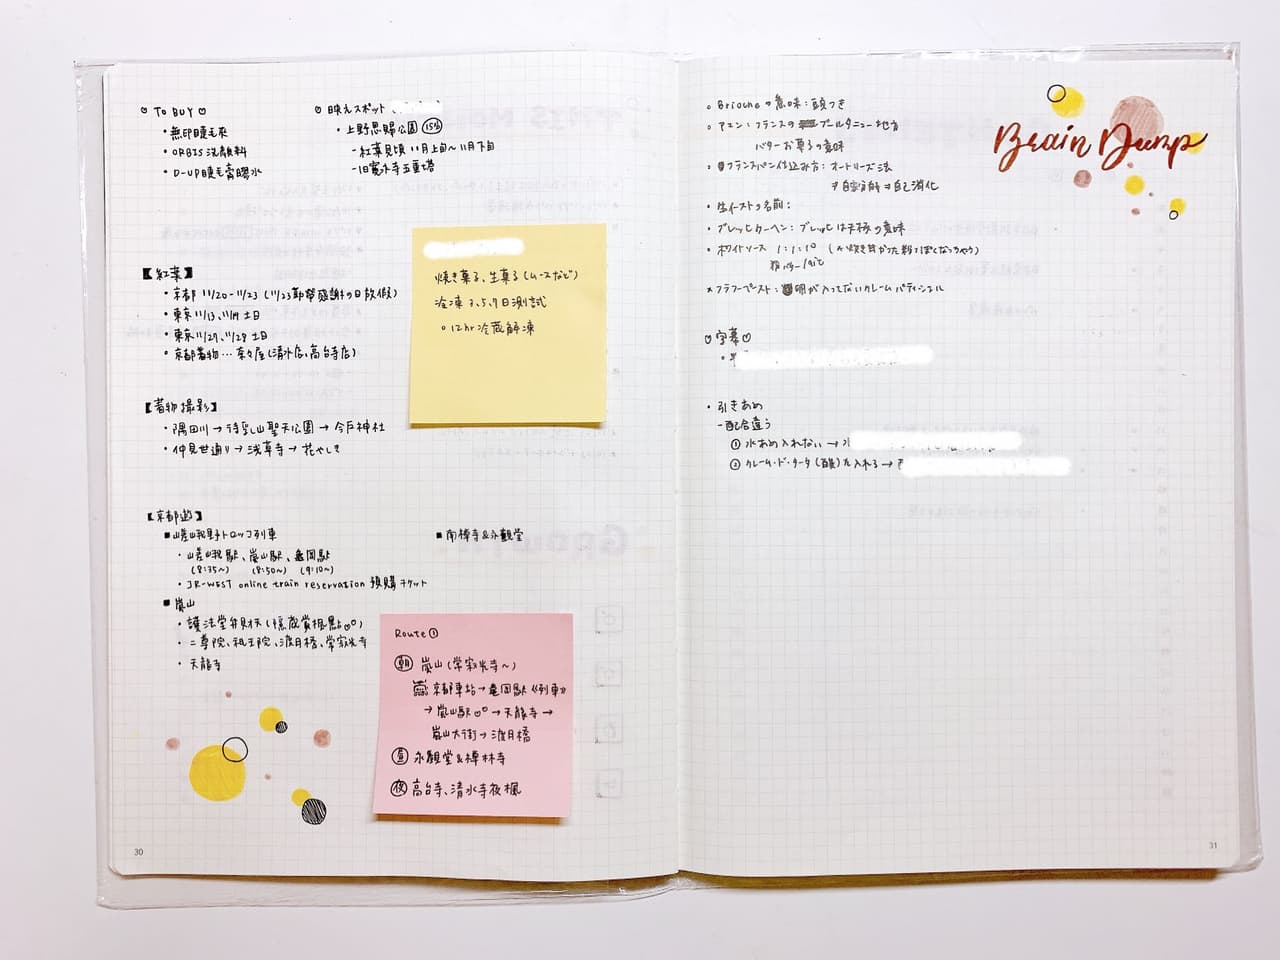 ♡ TO BUY ♡
・無印睫毛夾
・ORBIS 洗顏料
・D-UP睫毛膏膠水
♡ 映えスポット
・上野恩賜公園 15分
-紅葉見頃 11月上旬〜11月下旬
-旧寛永寺五重塔
【紅葉】
・京都 11/20-11/23 (11/23勤労感謝の日放假)
・東京 11/13、11/14 土日
・東京 11/27、11/28 土日
・京都着物…奈々屋(清水店、高台寺店)
【着物撮影】
・隅田川→待乳山聖天公園→今戸神社
・仲見世通り→浅草寺→花やしき
【京都遊】
■嵯峨野トロッコ列車
・嵯峨駅、嵐山駅、亀岡駅
(8:35~) (8:50~) (9:10~)
・JR-WEST online train reservation 預購チケット
■嵐山
・護法堂弁財天(隱藏賞楓點♡)
・二尊院、祇王院、渡月橋、常寂光寺
・天龍寺
■南禅寺&永觀堂
焼き菓子、生菓子(ムースなど)
冷凍 3、5、7日測試
○12hr冷蔵解凍
Route①
朝 嵐山(常寂光寺~)
京都車站→亀岡駅《列車》
→嵐山駅→天龍寺→
嵐山大街→渡月橋
昼 永觀堂&禅林寺
夜 高台寺、清水寺夜楓
30
Brain Dump
○ Briocheの意味:頭つき
○ クエン:フランスの ブルターニュ地方
バターお菓子の意味
・フランスパン仕込み方:オートリーズ法
⇒自家分解⇒自己消化
・生イーストの名前:
・ブレッヒクーヘン:ブレッヒは天板の意味
・ホワイトソース 1:1:10
×フラワーペースト:卵が入ってないクレームパティシエール
♡字幕♡
・引きあめ
-配合違う
① 水あめ入れない→
② クレーム・ド・タータ(酸)を入れる→
31